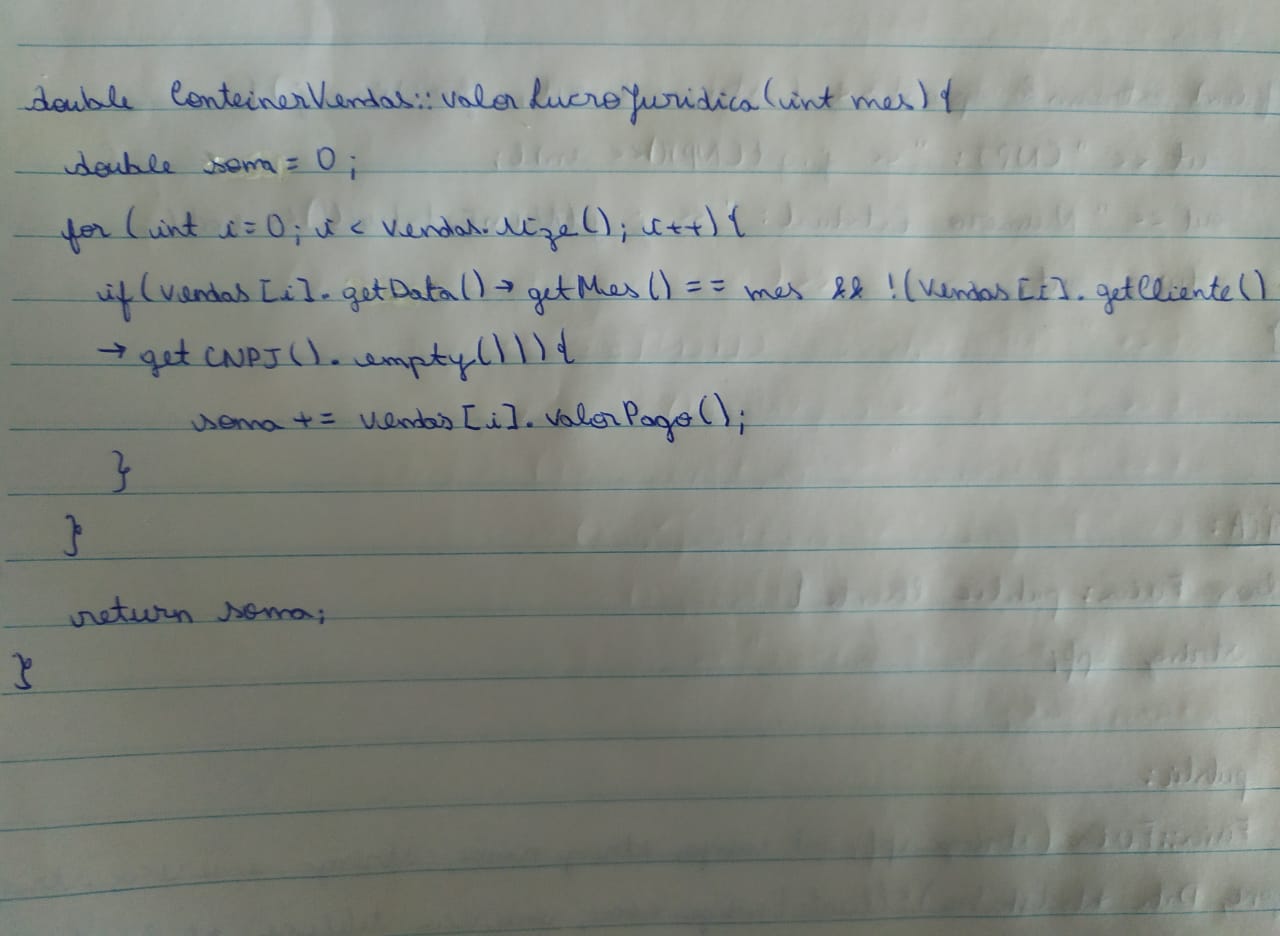 double ConteinerVendas::valorLucroJuridica(int mes){
double soma = 0;
for (int i=0; i < vendas.size(); i++){
if(vendas[i].getData()→getMes() == mes && !(vendas[i].getCliente()
→getCNPJ().empty())){
soma += vendas[i].valorPago();
}
}
return soma;
}